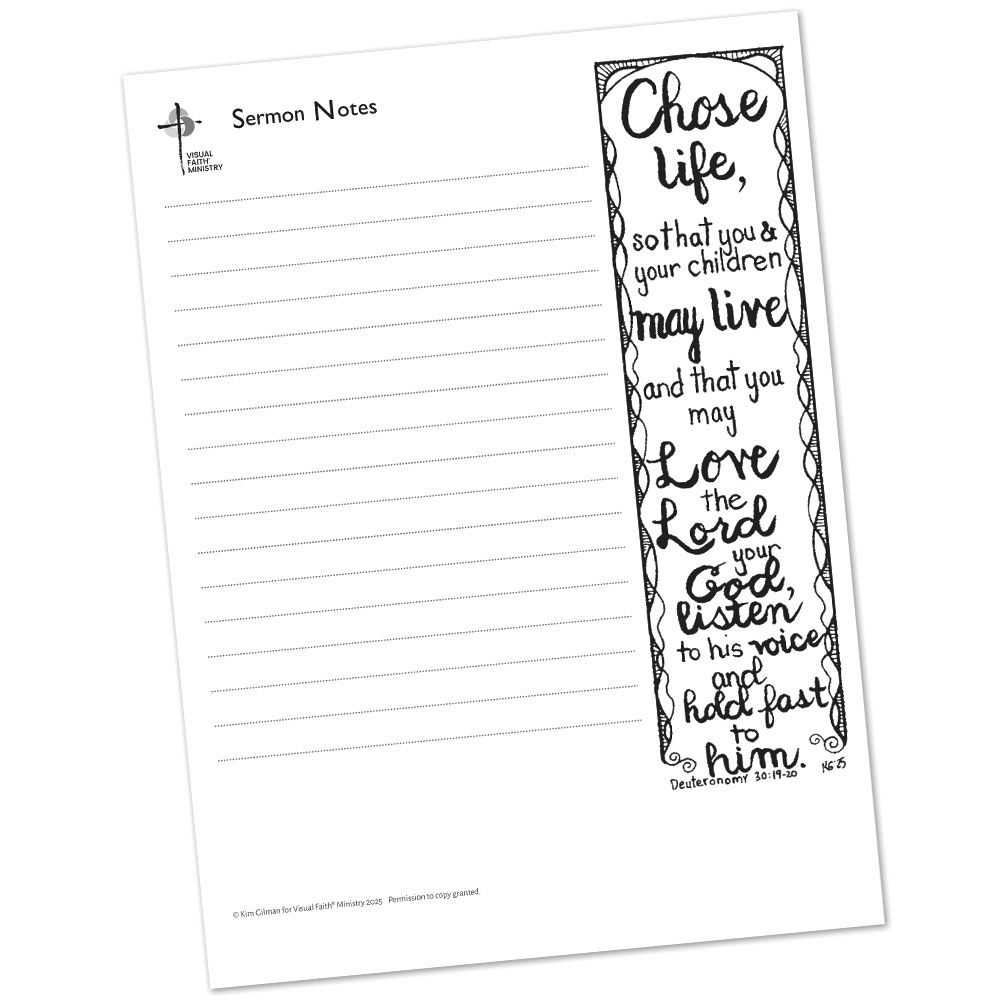 VISUAL
FAITH®
MINISTRY
Sermon Notes
Chose
life,
so that you &
your children
may live
and that you
may
Love
the
Lord
your
God,
listen
to his voice
and
hold fast
to
him.
Deuteronomy 30:19-20
KG '25
© Kim Gilman for Visual Faith® Ministry 2025 Permission to copy granted.